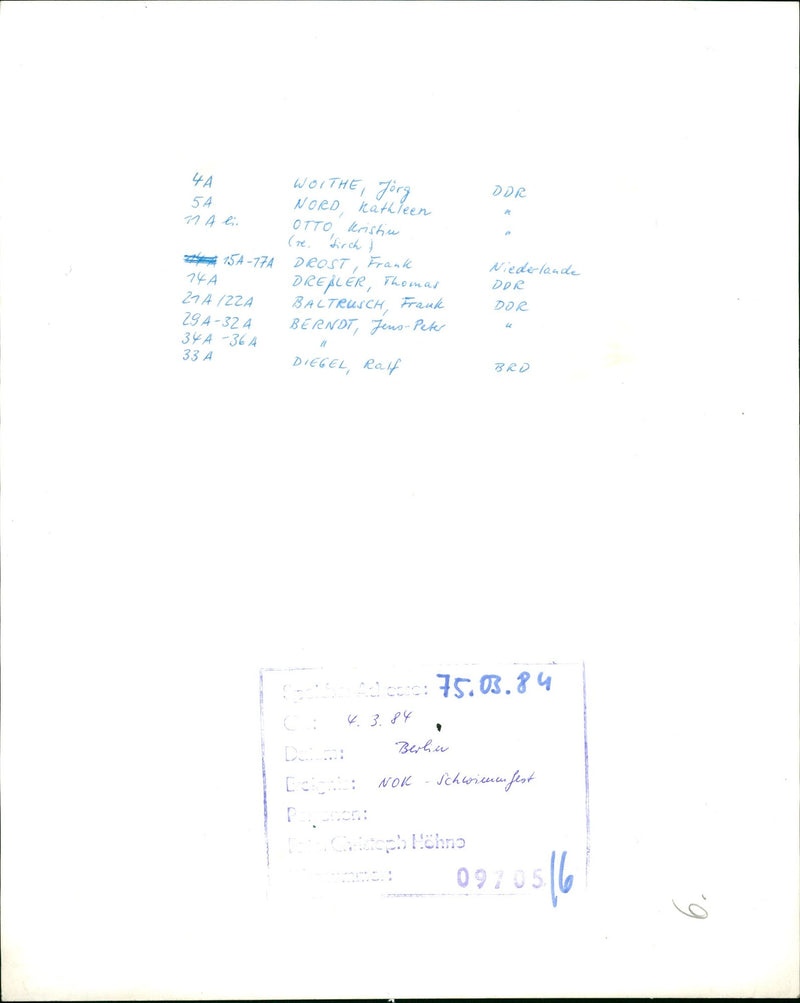 4A WOITHE, Jörg DDR
5A NORD, Kathleen "
11A li. OTTO, Kristin "
(re. Sirch)
15A-17A DROST, Frank Niederlande
14A DREßLER, Thomas DDR
21A/22A BALTRUSCH, Frank DDR
29A-32A BERNDT, Jens-Peter "
34A-36A "
33A DIEGEL, Ralf BRD
Speicher-Adresse: 75.03.84
4. 3. 84
Datum: Berlin
Ereignis: NOK - Schwimmfest
Personen:
Foto: Christoph Höhne
09705/6
6.